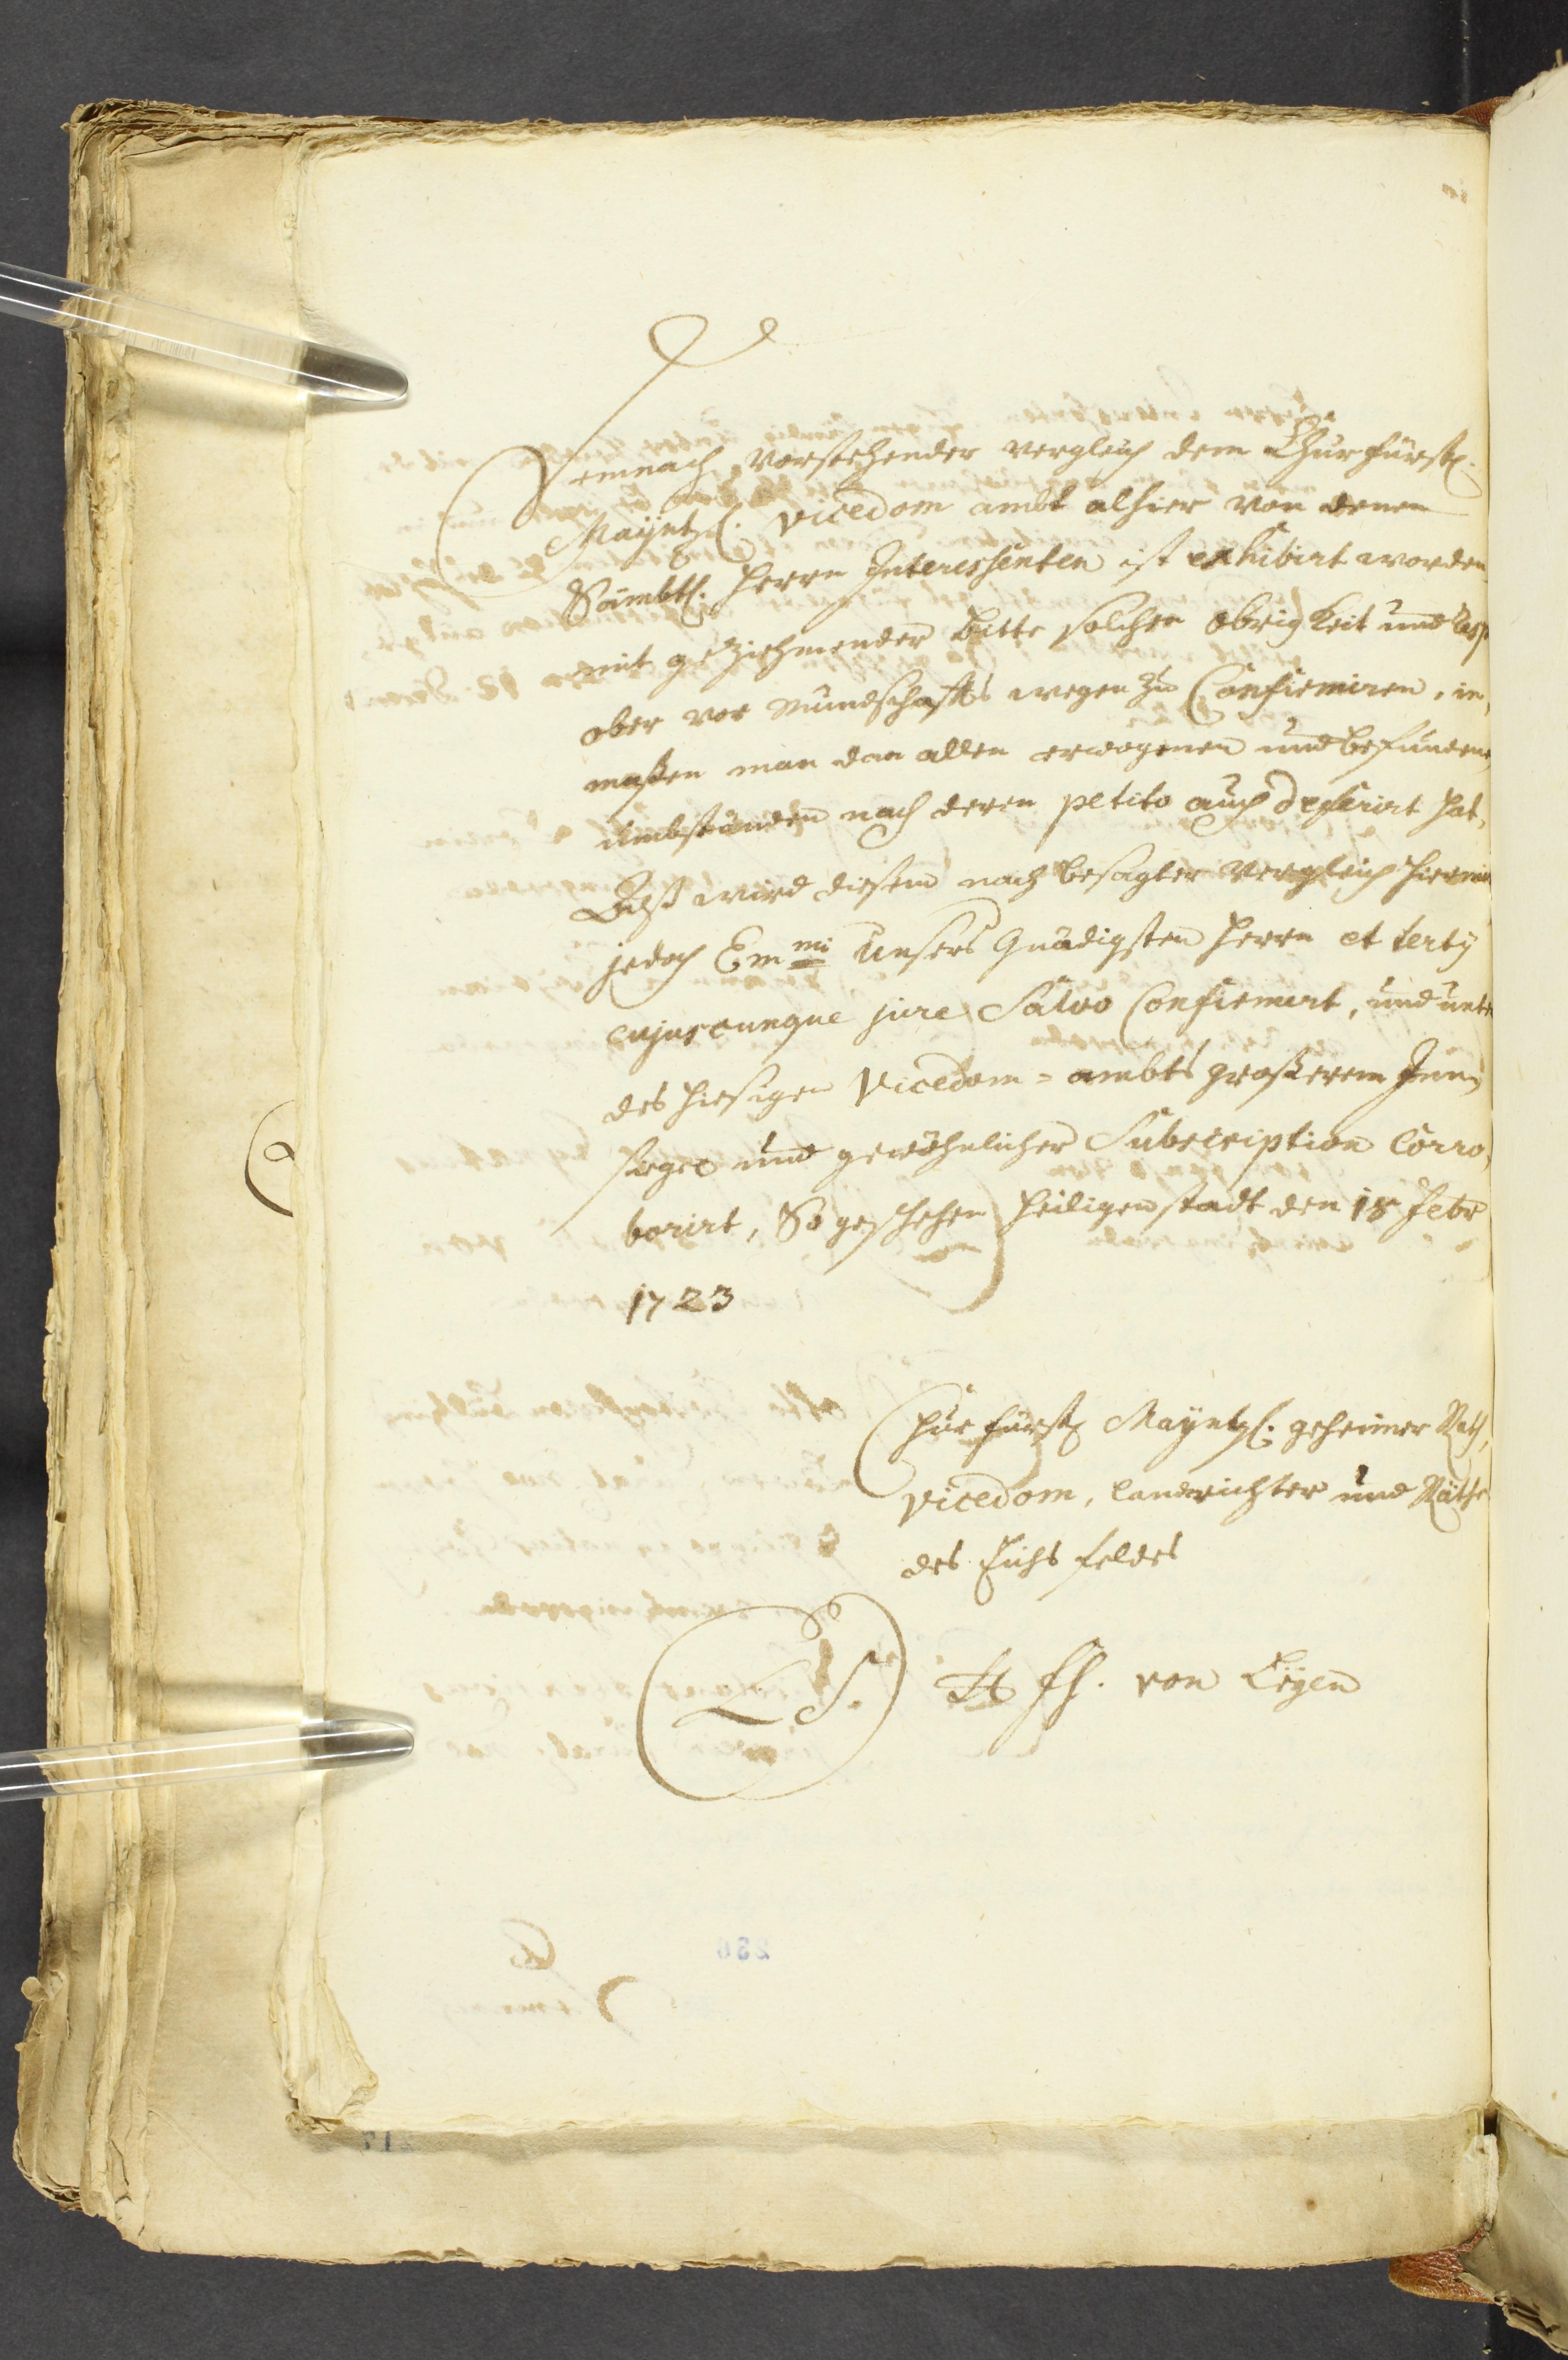 Demnach vorstehender vergleich dem Churfürstl.
Mayntzl. Vicedom ambt alhier von denen
Sämbtl. Herrn Interessenten ist exhibirt worden
mit geziehmender bitte solchen obrigkeit und
ober vor mundschaffts wegen zu Confirmiren, in,
maßen man dan allen erwogenen und befundene,
umbständen nach deren petito auch deferirt hat,
Alß wird diesem nach besagter Vergleich hiermit
jedoch Em mi Unsers Gnädigsten Herrn et tertÿ
cujuscunque jure Salvo Confirmirt, und unter
des hiesigen Vicedom=ambts großerem Inn,
siegel und gewöhnlicher Subscription Corro,
borirt, So geschehen Heiligenstadt den 18 Febr
1723
Churfürstl Mayntzl. geheimer Rath,
Vicedom, Landrichter und Räthe
des Eichsfeldes
L S. fh. von